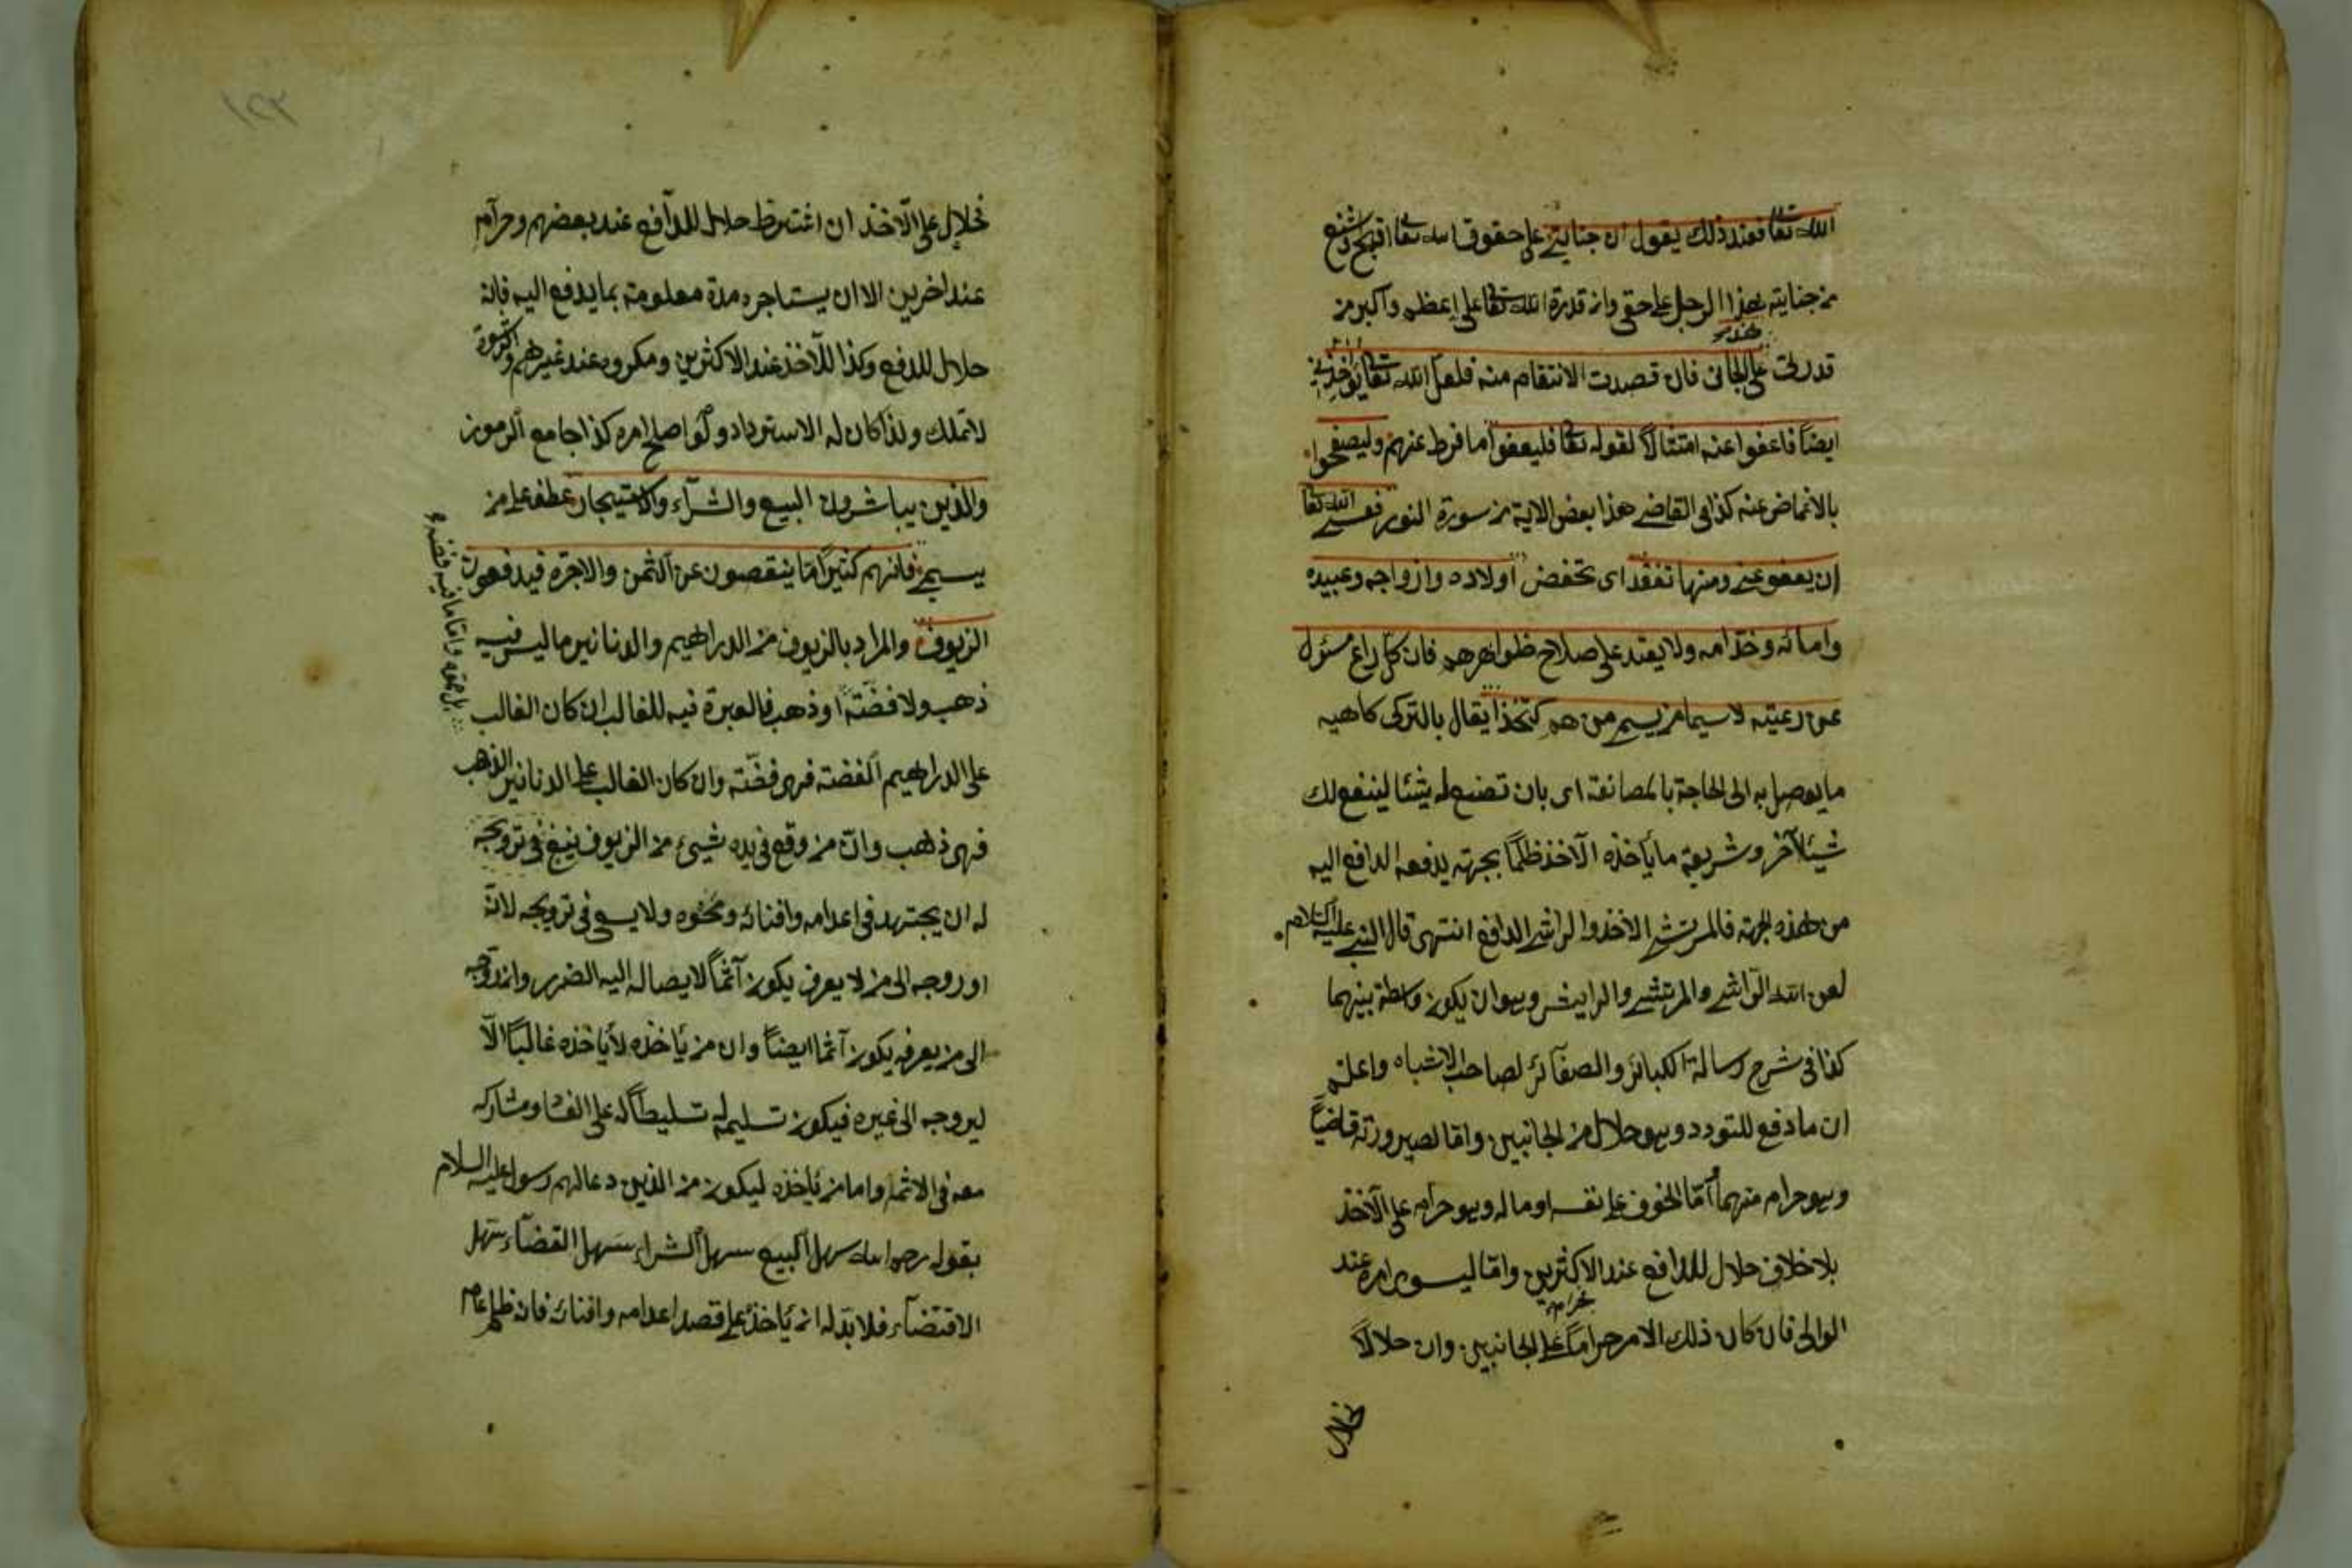 الله تعا فعند ذلك يقول ان جنايتي على حقوق الله تعا اقبح واشنع
من جنايته هذا الرجل على حقي وان قدرة الله تعا على اعظم واكبر من
قدرتي على الجاني فان قصدت الانتقام منه فلعل الله تعا يؤاخذني
ايضاً فاعفوا عنه امتثالاً لقوله تعا فليعفوا ما فرط عنهم وليصفحوا
بالاغماض عنه كذا في القاضي هذا بعض الاية من سورة النور فعسى الله تعا
ان يعفو عني ومنها تفقد اى تخفض اولاده وازواجه وعبيده
وامائه وخدامه ولا يقتد على صلاح ظواهرهم فان كل راع مسئول
عن رعيته لاسيما من يسم من هم كتخذا يقال بالتركى كاهيه
ما يوصل به الى الحاجة بالمصانعة اى بان تصنع له شيئا ليصنع لك
شيئا آخر وشريعة ما يأخذه الآخذ ظلماً بجهته يدفعه الدافع اليه
من هذه الجهة فالمرتشي الاخذ والراشي الدافع انتهى قال النبي عليه السلام
لعن الله الراشي والمرتشي والرايش وهو ان يكون واسطة بينهما
كذا في شرح رسالة الكبائر والصغائر لصاحب الاشباه واعلم
ان ما دفع للتودد وهو حلال من الجانبين واما لصيرورته قاضياً
وهو حرام منهما واما لخوف على نفسه او ماله وهو حرام على الآخذ
بلا خلاف حلال للدافع عند الاكثرين واما ليسوى امره عند
الوالى فان كان ذلك الامر حراماً فحرام على الجانبين وان حلالاً
فحلال
١٢٣
فحلال على الآخذ ان اشترط حلال للدافع عند بعضهم وحرام
عند اخرين الا ان يستاجره مدة معلومة بما يدفع اليه فانه
حلال للدفع وكذا للآخذ عند الاكثرين ومكروه عند غيرهم والرشوة
لا تملك ولذا كان له الاسترداد ولو اصلح امره كذا جامع الرموز
والذين يباشرون البيع والشراء والاستيجار عطف على من
يسم فانهم كثيراً ما ينقصون عن الثمن والاجرة فيدفعون
الزيوف والمراد بالزيوف من الدراهيم والدنانير ما ليس فيه
ذهب ولا فضة او ذهب فالعبرة فيه للغالب ان كان الغالب
على الدراهيم الفضة فهى فضة وان كان الغالب على الدنانير الذهب
فهى ذهب وان من وقع في يده شيئ من الزيوف ينبغي في ترويجه
له ان يجتهد في اعدامه وافنائه ومحوه ولا يسعى في ترويجه لانه
او روجه الى من لا يعرف يكون آثماً لايصاله اليه الضرر وان روجه
الى من يعرفه يكون آثما ايضاً وان من يأخذه لا يأخذه غالباً الا
ليروجه الى غيره فيكون تسليمه تسليطاً له على الفساد ومشاركه
معه في الاثم واما من يأخذه ليكون من الذين دعا لهم رسول عليه السلام
بقوله رحم الله سهل البيع سهل الشراء سهل القضاء سهل
الاقتضاء فلا بد له ان يأخذه على قصد اعدامه وافنائه فانه ظلم عام